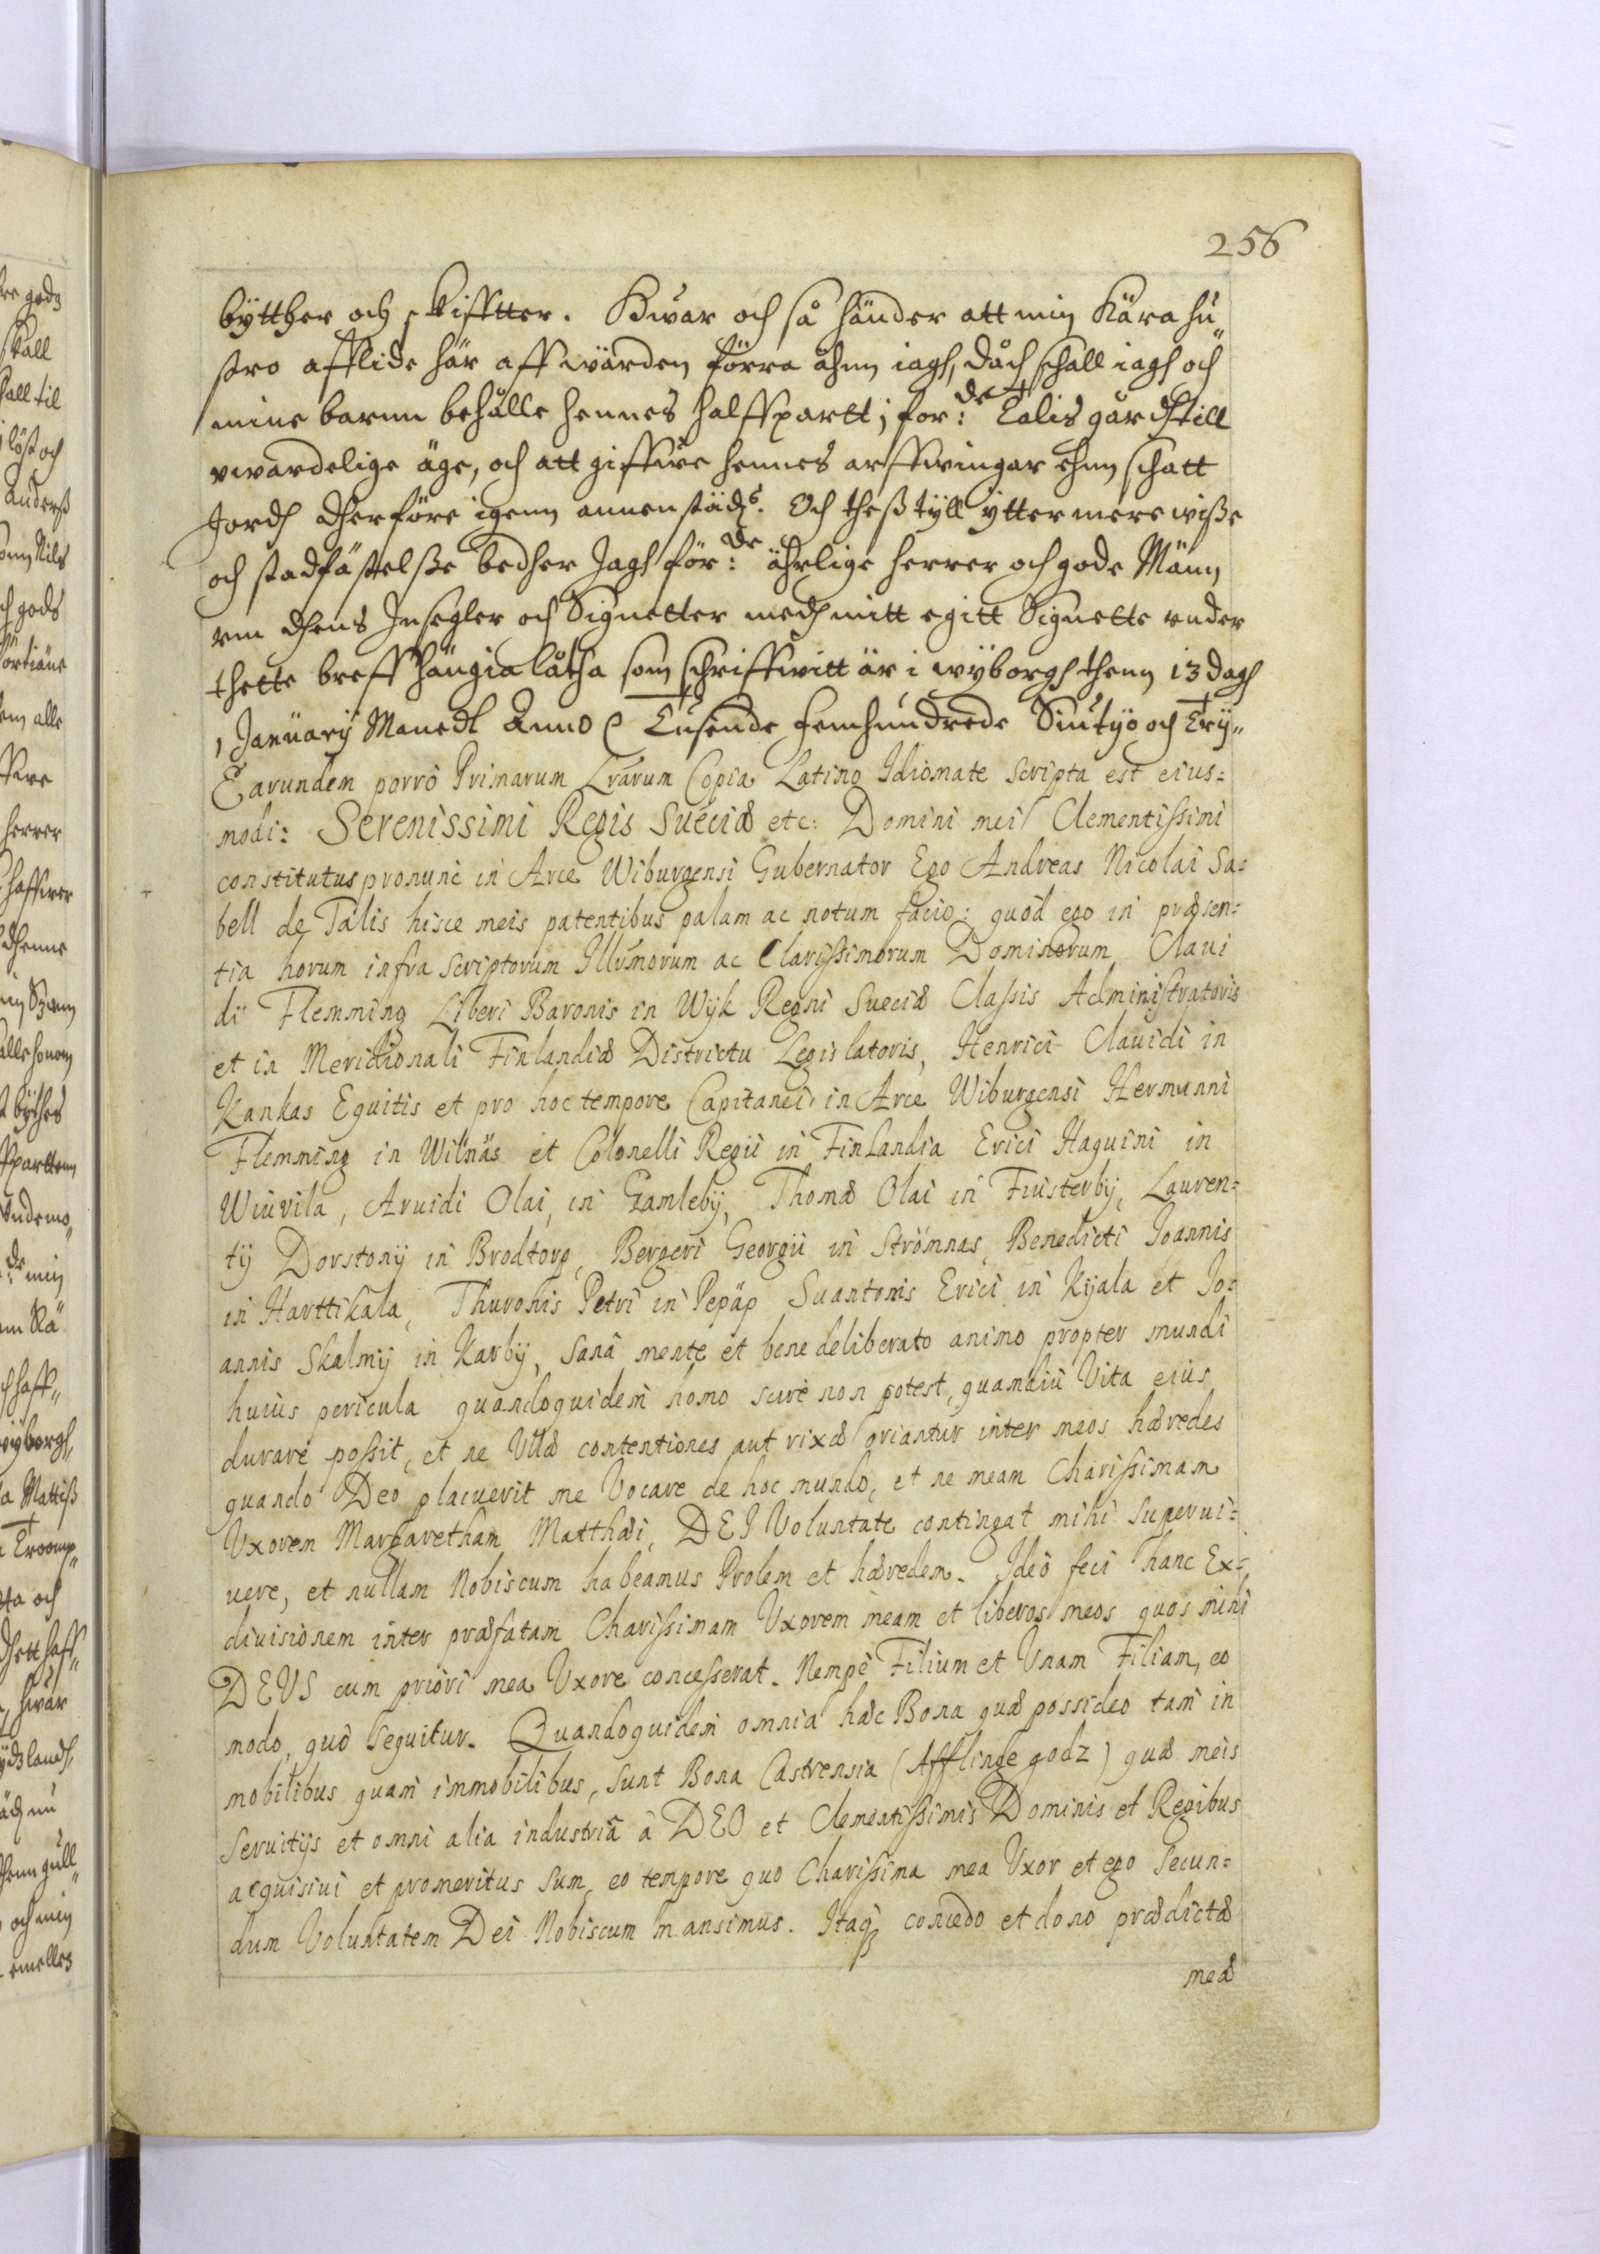 256
bytther och skiffter. Hwar och så händer att min kära hu„
stro afflide här aff wärden förra ähnn iagh, dåch schall iagh och
mine barnn behålle hennes halffpartt j for:de Talis gårdh till
ewärdelige äge, och att giffwe hennes arffwingar ehnn schatt
Jordh dherföre igenn annenstäds. Och theß tyll ytter mere wiße
och stadfästelße bedher Jagh för:de ährlige herrer och gode Männ
om dhens Insegler och Signetter medh mitt egitt Signette under
thette breff hängia låtha som schriffwitt är i wyborgh thenn 13 dagh
January Manedt Anno Tusende femhundrede Siutyo och Try„
Earundem porrò Primarum Lrarum Copia Latino Idiomate scripta est eius=
modi: Serenissimi Regis Sueciæ etc: Domini mei Clementissimi
constitutus pronunc in Arce Wiburgensi Gubernator Ego Andreas Nicolai Sa=
bell de Talis hisce meis patentibus palam ac notum facio: quòd ego in præsen=
tia horum infra scriptorum Illvmorum ac Clarissimorum Dominorum Claui
dii Flemming Liberi Baronis in Wyk Regni Sueciæ Classis Administratoris
et in Meridionali Finlandiæ Districtu Legislatoris, Henrici Clauidi in
Kankas Equitis et pro hoc tempore Capitanei in Arce Wiburgensi Hermanni
Flemming in Wilnäs et Colonelli Regii in Finlandia Erici Haquini in
Wiurila, Aruidi Olai, in Gamleby, Thomæ Olai in Finsterby, Lauren=
ty Dorstony in Brodtorp, Bergeri Georgii in Strömnas, Benedicti Joannis
in Harttikala, Thuronis Petri in Pepäp Suantonis Erici in Kyala et Jo=
annis Skalmy in Karby, sanâ mente et bene deliberato animo propter mundi
huius pericula quandoquidem homo scire non potest, quamdiù Vita eius
durare possit, et ne Vllæ contentiones aut rixæ oriantur inter meos hæredes
quando Deo placuerit me Vocare de hoc mundo, et ne meam Charissimam
Vxorem Margaretham Matthæi, DEI Voluntate contingat mihi superui=
uere, et nullam Nobiscum habeamus Prolem et hæredem. Ideò feci hanc Ex=
diuisionem inter præfatam Charissimam Vxorem meam et liberos meos quos mihi
DEVS cum priori mea Vxore concesserat. Nempè Filium et Vnam Filiam, eo
modo, quo sequitur. Quandoquidem omnia hæc Bona quæ possideo tam in
mobilibus quam immobilibus, sunt Bona Castrensia (Afflinge godz) quæ meis
seruitijs et omni alia industriâ à DEO et Clementissimis Dominis et Regibus
acquisiui et promeritus sum, eo tempore quo Charissima mea Vxor et ego secun=
dum Voluntatem Dei Nobiscum mansimus. Itaq concedo et dono prædictæ
meæ